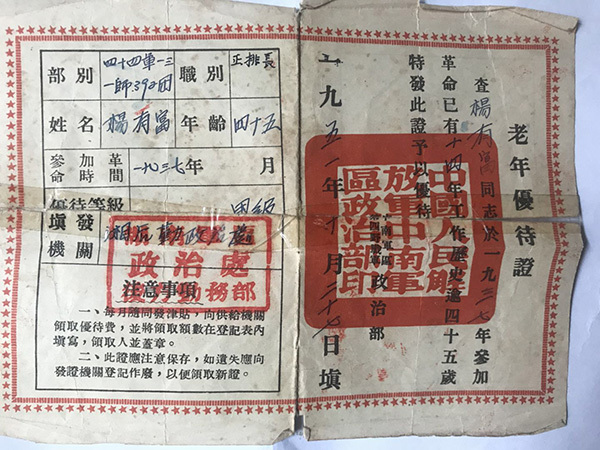 老年優待證
查楊有富同志於一九三七年參加
革命已有十四年工作歷史逾四十五歲
特發此證予以優待
中南軍區
政治部
一九五一年十月二十七日填
中國人民解
放軍中南軍
區政治部印
部別 四十四軍一三一師392團 職別 正排長
姓名 楊有富 年齡 四十五
參加革命時間 一九三七年 月
優待等級 甲級
填發機關
政治處
勤務部
注意事項
一、每月隨同發津貼，向供給機關
領取優待費，並將領取額數在登記表內
填寫，領取人並蓋章。
二、此證應注意保存，如遺失應向
發證機關登記作廢，以便領取新證。